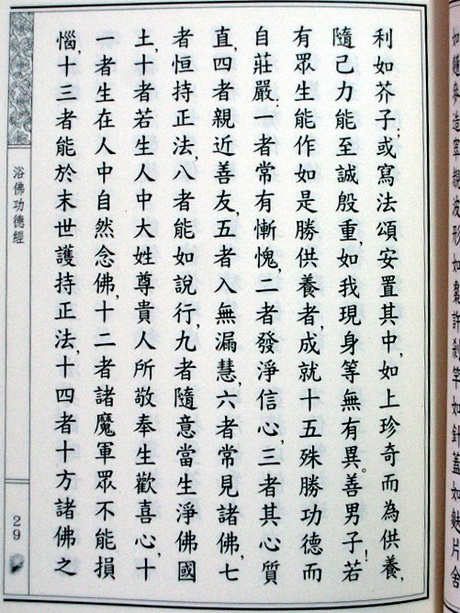 造窣覩波形如棗許剎竿如針蓋如麩片舍
利如芥子,或寫法頌安置其中,如上珍奇而為供養,
隨己力能至誠殷重,如我現身等無有異。善男子!若
有眾生能作如是勝供養者,成就十五殊勝功德而
自莊嚴:一者常有慚愧,二者發淨信心,三者其心質
直,四者親近善友,五者入無漏慧,六者常見諸佛,七
者恒持正法,八者能如說行,九者隨意當生淨佛國
土,十者若生人中大姓尊貴人所敬奉生歡喜心,十
一者生在人中自然念佛,十二者諸魔軍眾不能損
惱,十三者能於末世護持正法,十四者十方諸佛之
浴佛功德經
29